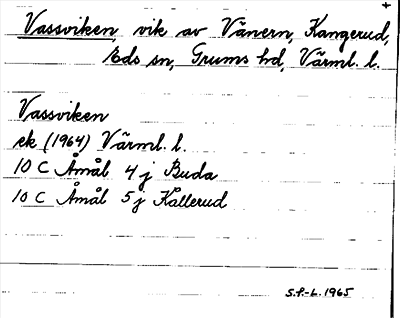 +
Vassviken, vik av Vänern, Kangerud,
Eds sn, Grums hd, Värml. l.
Vassviken
ek (1964) Värml. l.
10 C Åmål 4 j Buda
10 C Åmål 5 j Kållerud
S.F.-L. 1965